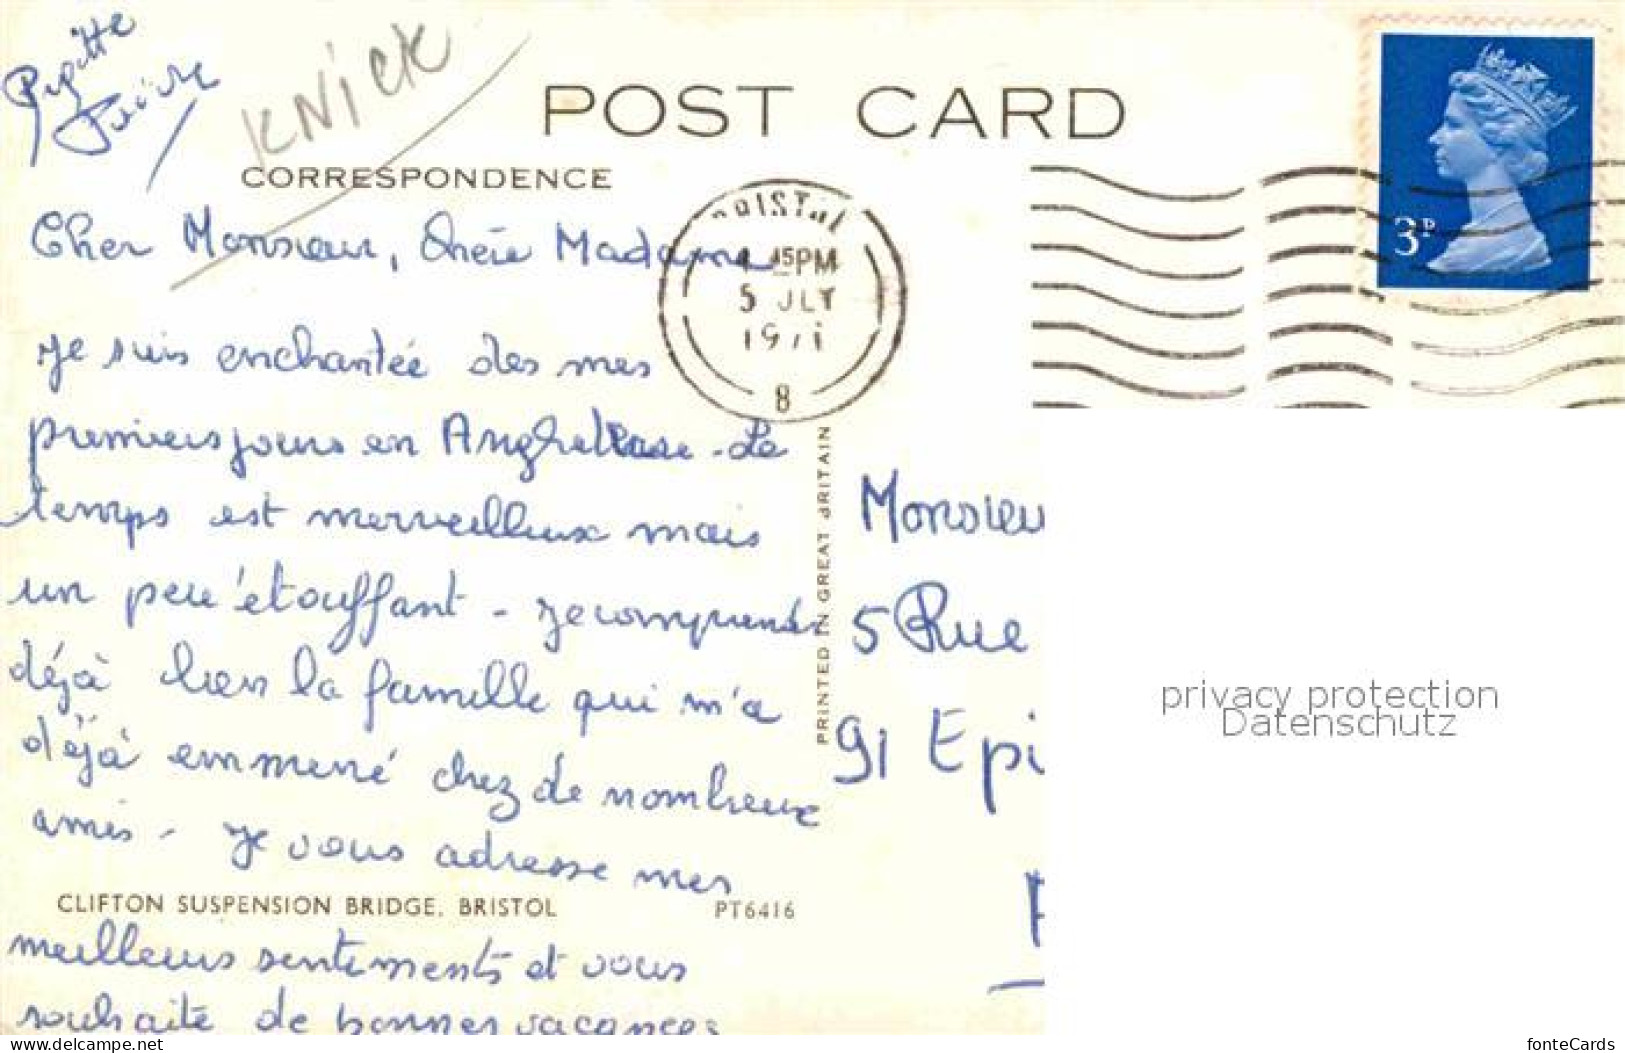 KNiCK
POST CARD
CORRESPONDENCE
BRISTOL
45PM
5 JLY
1971
8
3P
Cher Monsieur, Chère Madame
Je suis enchantée des mes
premiers jours en Angleterre - Le
temps est merveilleux mais
un peu étouffant - Je comprends
déjà bien la famille qui m'a
déjà emmené chez de nombreux
amis - Je vous adresse mes
CLIFTON SUSPENSION BRIDGE, BRISTOL PT6416
meilleurs sentiments et vous
souhaite de bonnes vacances
PRINTED IN GREAT BRITAIN
Monsieu
5 Rue
91 Epi
privacy protection
Datenschutz
www.delcampe.net
fonteCards